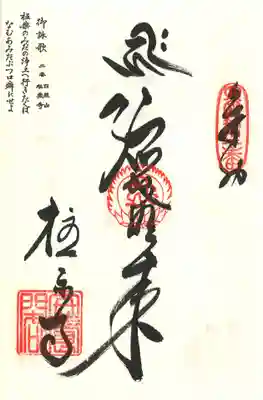 奉拝
阿弥陀如来
極楽寺
御詠歌 二番 日照山 極楽寺
極楽のみだの浄土へ行きたくば
なむあみだぶつ口癖にせよ